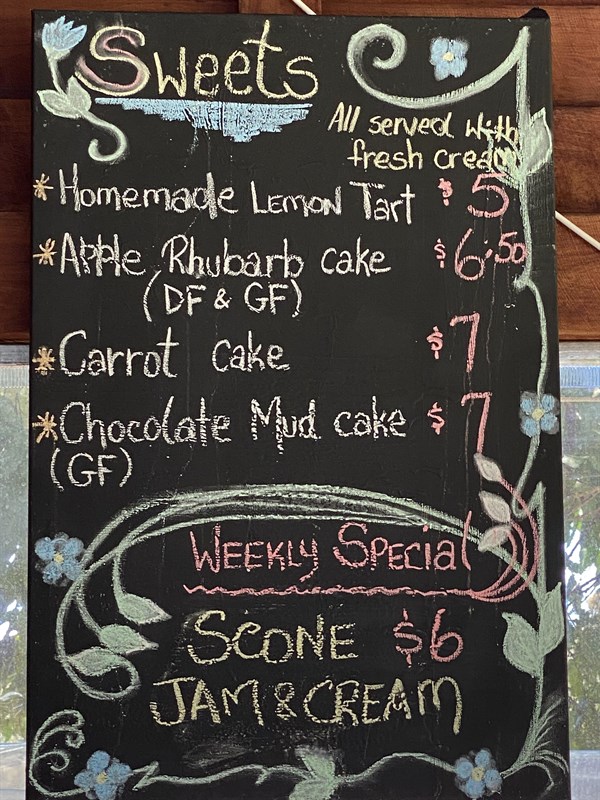 Sweets
All served with
fresh cream
* Homemade Lemon Tart $5
* Apple Rhubarb cake $6.50
(DF & GF)
* Carrot cake $7
* Chocolate Mud cake $7
(GF)
Weekly Special
SCONE $6
JAM & CREAM